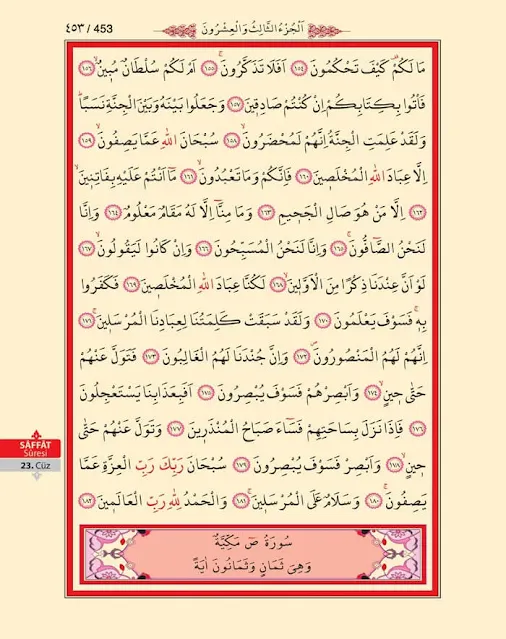 اَلْجُزْءُ الثَّالِثُ وَالْعِشْرُونَ
453 / ٤٥٣
مَا لَكُمْ۠ كَيْفَ تَحْكُمُونَ ﴿١٥٤﴾ اَفَلَا تَذَكَّرُونَۚ ﴿١٥٥﴾ اَمْ لَكُمْ سُلْطَانٌ مُب۪ينٌۙ ﴿١٥٦﴾
فَأْتُوا بِكِتَابِكُمْ اِنْ كُنْتُمْ صَادِق۪ينَ ﴿١٥٧﴾ وَجَعَلُوا بَيْنَهُ وَبَيْنَ الْجِنَّةِ نَسَبًاۜ
وَلَقَدْ عَلِمَتِ الْجِنَّةُ اِنَّهُمْ لَمُحْضَرُونَۙ ﴿١٥٨﴾ سُبْحَانَ اللّٰهِ عَمَّا يَصِفُونَۙ ﴿١٥٩﴾
اِلَّا عِبَادَ اللّٰهِ الْمُخْلَص۪ينَ ﴿١٦٠﴾ فَاِنَّكُمْ وَمَا تَعْبُدُونَۙ ﴿١٦١﴾ مَٓا اَنْتُمْ عَلَيْهِ بِفَاتِن۪ينَۙ
﴿١٦٢﴾ اِلَّا مَنْ هُوَ صَالِ الْجَح۪يمِ ﴿١٦٣﴾ وَمَا مِنَّٓا اِلَّا لَهُ مَقَامٌ مَعْلُومٌۙ ﴿١٦٤﴾ وَاِنَّا
لَنَحْنُ الصَّٓافُّونَۚ ﴿١٦٥﴾ وَاِنَّا لَنَحْنُ الْمُسَبِّحُونَ ﴿١٦٦﴾ وَاِنْ كَانُوا لَيَقُولُونَۙ ﴿١٦٧﴾
لَوْ اَنَّ عِنْدَنَا ذِكْرًا مِنَ الْاَوَّل۪ينَۙ ﴿١٦٨﴾ لَكُنَّا عِبَادَ اللّٰهِ الْمُخْلَص۪ينَ ﴿١٦٩﴾ فَكَفَرُوا
بِه۪ۚ فَسَوْفَ يَعْلَمُونَ ﴿١٧٠﴾ وَلَقَدْ سَبَقَتْ كَلِمَتُنَا لِعِبَادِنَا الْمُرْسَل۪ينَۚ ﴿١٧١﴾
اِنَّهُمْ لَهُمُ الْمَنْصُورُونَۖ ﴿١٧٢﴾ وَاِنَّ جُنْدَنَا لَهُمُ الْغَالِبُونَ ﴿١٧٣﴾ فَتَوَلَّ عَنْهُمْ
حَتّٰى ح۪ينٍۙ ﴿١٧٤﴾ وَاَبْصِرْهُمْ فَسَوْفَ يُبْصِرُونَ ﴿١٧٥﴾ اَفَبِعَذَابِنَا يَسْتَعْجِلُونَ
﴿١٧٦﴾ فَاِذَا نَزَلَ بِسَاحَتِهِمْ فَسَٓاءَ صَبَاحُ الْمُنْذَر۪ينَ ﴿١٧٧﴾ وَتَوَلَّ عَنْهُمْ حَتّٰى
ح۪ينٍۙ ﴿١٧٨﴾ وَاَبْصِرْ فَسَوْفَ يُبْصِرُونَ ﴿١٧٩﴾ سُبْحَانَ رَبِّكَ رَبِّ الْعِزَّةِ عَمَّا
يَصِفُونَۚ ﴿١٨٠﴾ وَسَلَامٌ عَلَى الْمُرْسَل۪ينَۚ ﴿١٨١﴾ وَالْحَمْدُ لِلّٰهِ رَبِّ الْعَالَم۪ينَ ﴿١٨٢﴾
سُورَةُ صٓ مَكِّيَّةٌ
وَهِىَ ثَمَانٍ وَثَمَانُونَ اٰيَةً
SÂFFÂT
Sûresi
23. Cüz